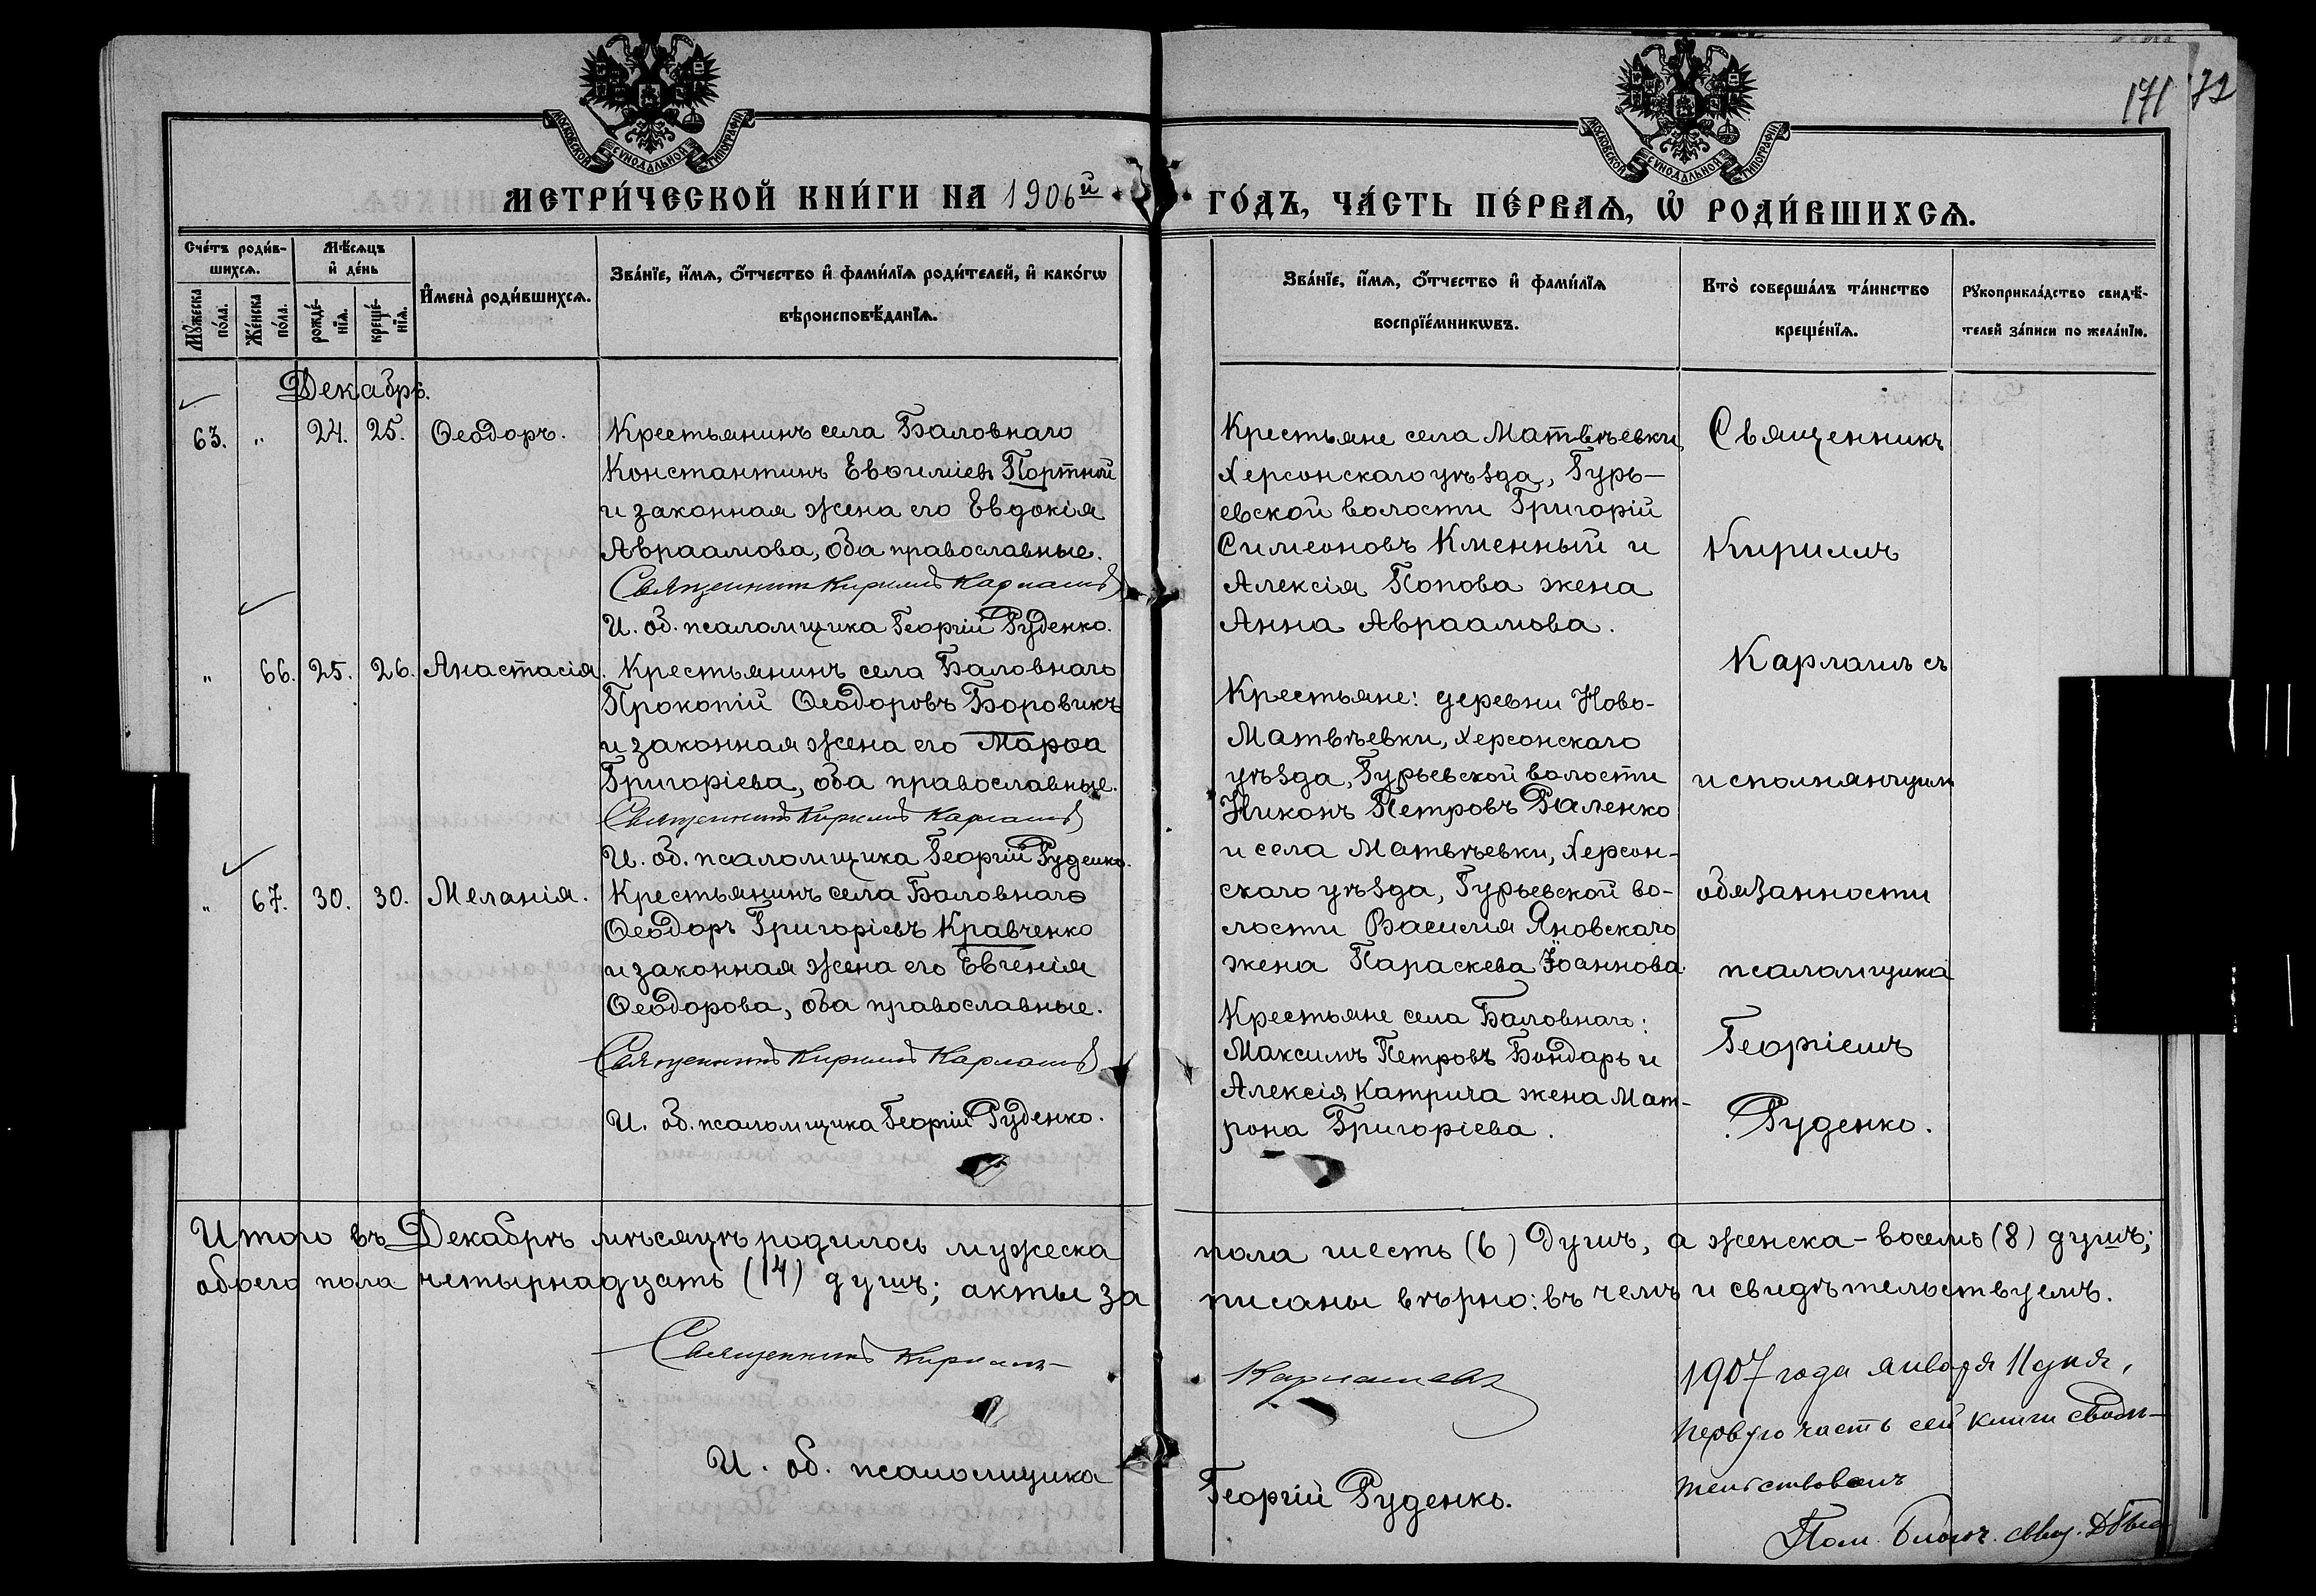 171 72
МОСКОВСКОЙ СѴНОДАЛЬНОЙ ТИПОГРАФІИ
МОСКОВСКОЙ СѴНОДАЛЬНОЙ ТИПОГРАФІИ
МЕТРИ́ЧЕСКОЙ КНИ́ГИ НА 1906й
ГО́ДЪ, ЧА́СТЬ ПЕ́РВАѦ, Ѡ҆ РОДИ́ВШИХСѦ.
Сче́тъ роди́в-
шихсѧ.
Мꙋ́жеска
по́ла.
Же́нска
по́ла.
Мѣ́сѧцъ
и҆ де́нь
рожде́-
нїѧ.
креще́-
нїѧ.
И҆мена̀ роди́вшихсѧ.
Зва́нїе, и҆́мѧ, ѻ҆́тчество и҆ фами́лїѧ роди́телей, и҆ како́гѡ
вѣроисповѣ́данїѧ.
Зва́нїе, и҆́мѧ, ѻ҆́тчество и҆ фами́лїѧ
воспрїе́мникѡвъ.
Кто̀ соверша́лъ та́инство
креще́нїѧ.
Рꙋкоприкла́дство свидѣ́-
телей за́писи по жела́нїю.
Декабрь.
63. " 24. 25. Ѳеодоръ.
Крестьянинъ села Баловнаго
Константинъ Евѳиміевъ Портной
и законная жена его Евдокія
Авраамова, оба православные.
Священникъ Кириллъ Карпашъ
И. об. псаломщика Георгій Руденко.
Крестьяне села Матвѣевки,
Херсонскаго уѣзда, Гурь-
евской волости Григорій
Симеоновъ Кменный и
Алексія Попова жена
Анна Авраамова.
" 66. 25. 26. Анастасія.
Крестьянинъ села Баловнаго
Прокопій Ѳеодоровъ Боровикъ
и законная жена его Марѳа
Григоріева, оба православные.
Священникъ Кириллъ Карпашъ
И. об. псаломщика Георгій Руденко.
Крестьяне: деревни Ново-
Матвѣевки, Херсонскаго
уѣзда, Гурьевской волости
Никонъ Петровъ Галенко
и села Матвѣевки, Херсон-
скаго уѣзда, Гурьевской во-
лости Василія Яновскаго
жена Параскева Іоаннова.
" 67. 30. 30. Меланія.
Крестьянинъ села Баловнаго
Ѳеодоръ Григоріевъ Кравченко
и законная жена его Евгенія
Ѳеодорова, оба православные.
Священникъ Кириллъ Карпашъ
И. об. псаломщика Георгій Руденко.
Крестьяне села Баловнаго:
Максимъ Петровъ Бондарь и
Алексія Катрича жена Мат-
рона Григоріева.
Священникъ
Кириллъ
Карпашъ съ
исполняющимъ
обязанности
псаломщика
Георгіемъ
Руденко.
Итого въ Декабрѣ мѣсяцѣ родилось мужеска
пола шесть (6) душъ, а женска - восемь (8) душъ;
обоего пола четырнадцать (14) душъ; акты за
писаны вѣрно: въ чемъ и свидѣтельствуемъ.
Священникъ Кириллъ
И. об. псаломщика
Георгій Руденко.
1907 года января 11 дня,
первую часть сей книги свидѣ-
тельствовалъ
Пом. Благоч.